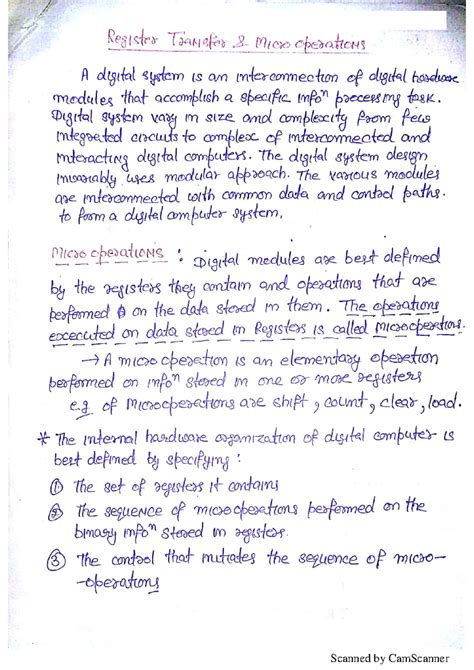 Register Transfer & Micro operations
A digital system is an interconnection of digital hardware
modules that accomplish a specific infoⁿ processing task.
Digital system vary in size and complexity from few
integrated circuits to complex of interconnected and
interacting digital computers. The digital system design
invariably uses modular approach. The various modules
are interconnected with common data and control paths.
to form a digital computer system.
Micro operations : Digital modules are best defined
by the registers they contain and operations that are
performed on the data stored in them. The operations
excecuted on data stored in Registers is called microoperations.
→ A micro operation is an elementary operation
performed on infoⁿ stored in one or more registers
e.g of microoperations are shift, count, clear, load.
* The internal hardware organization of digital computer is
best defined by specifying :
① The set of registers it contains
② The sequence of microoperations performed on the
binary infoⁿ stored in registers.
③ The control that initiates the sequence of micro-
-operations
Scanned by CamScanner